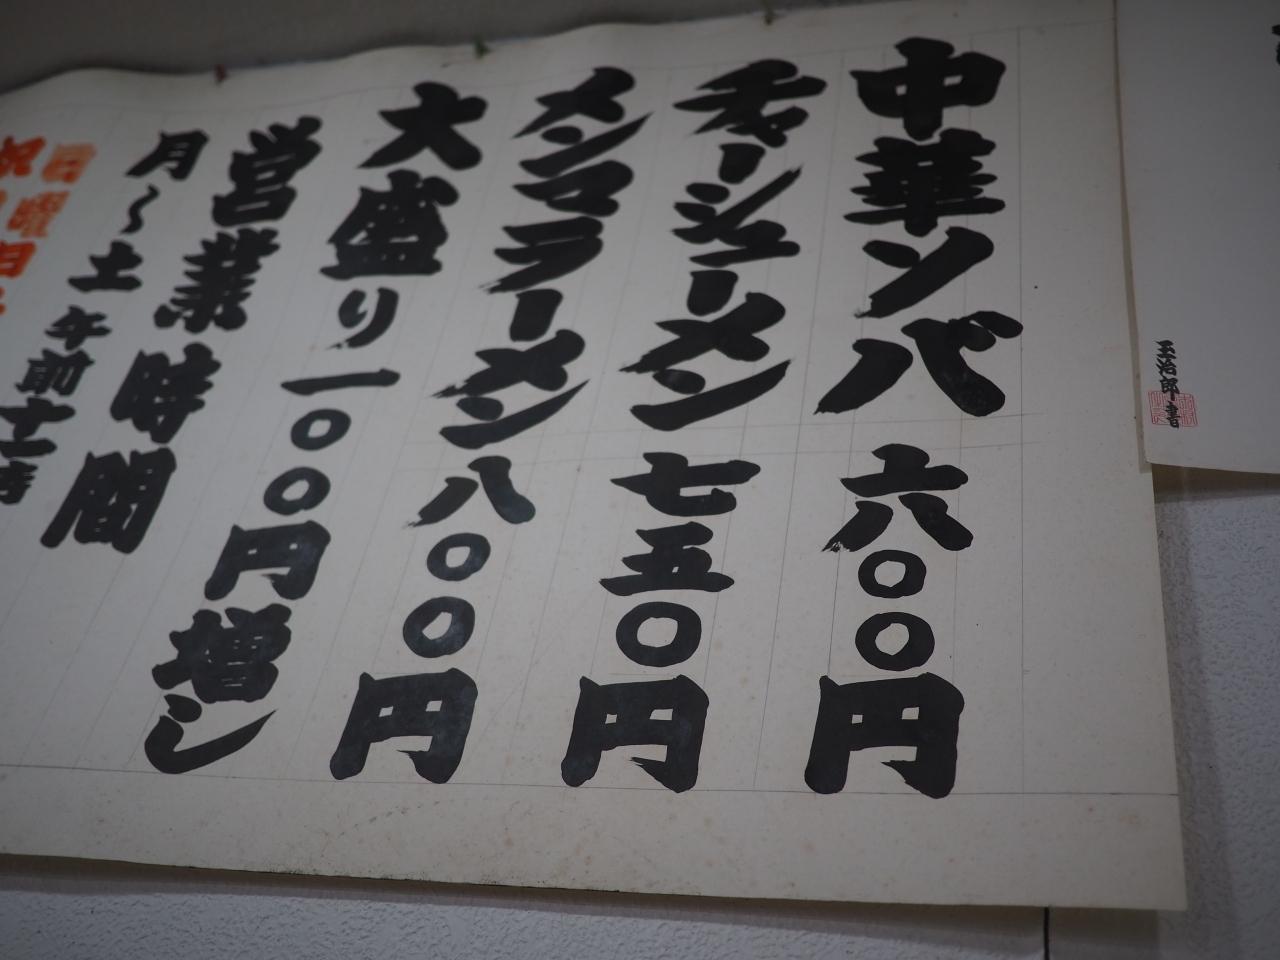 玉治郎書
中華ソバ 六〇〇円
チャーシューメン 七五〇円
メンマラーメン 八〇〇円
大盛り一〇〇円増し
営業時間
月〜土 午前十一時
日曜
祝日